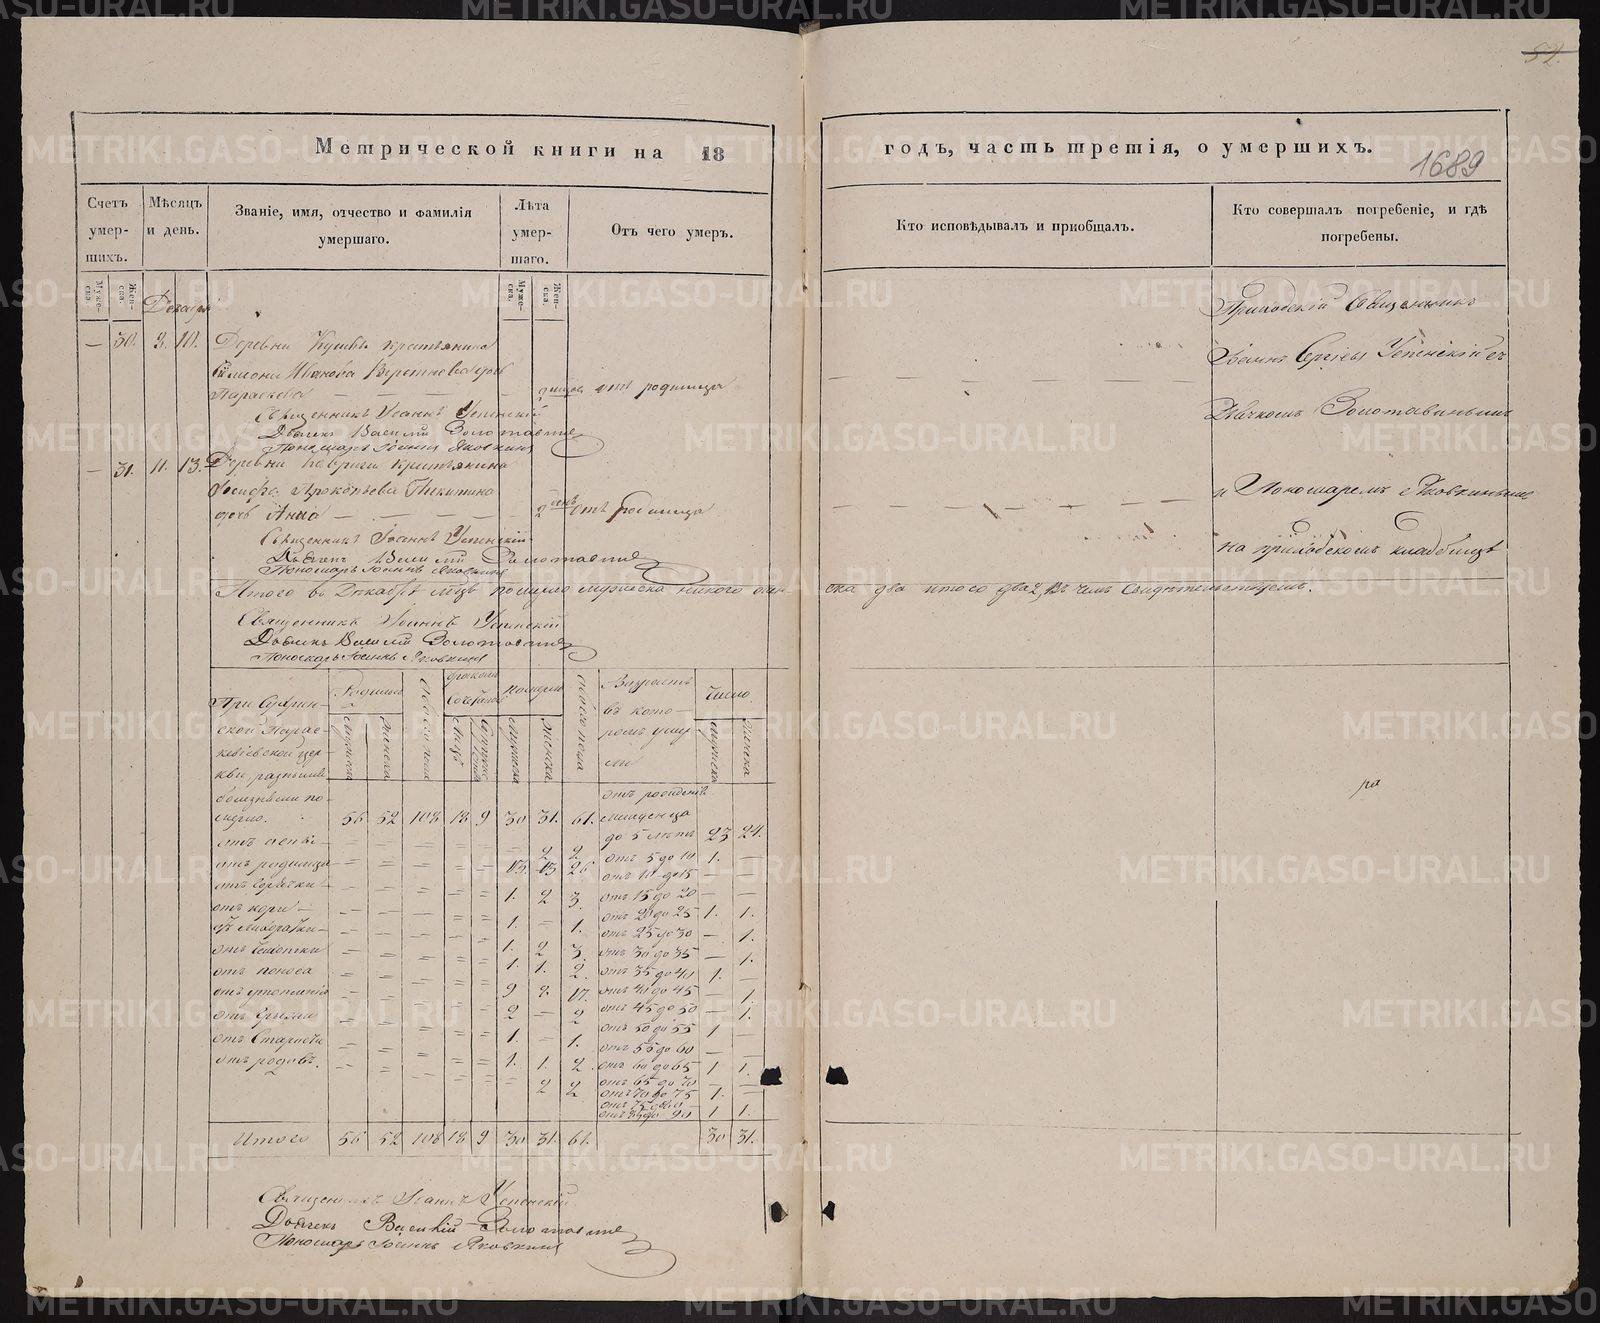 82.
Метрической книги на 18
годъ, часть третія, о умершихъ.
1689
Счетъ умер- шихъ.
Мѣсяцъ и день.
Званіе, имя, отчество и фамилія умершаго.
Лѣта умер- шаго.
Отъ чего умеръ.
Кто исповѣдывалъ и пріобщалъ.
Кто совершалъ погребеніе, и гдѣ погребены.
Муже- ска.
Жен- ска.
Муже- ска.
Жен- ска.
Декабрь
— 30. 9. 10. Деревни крестьянина
Иванова дочь
Параскева — — — — отъ родимца
Священникъ Іоаннъ Успенскій
Дьячекъ Василій Золотавинъ
Пономарь Іоаннъ Яковкинъ
— 31. 11. 13. Деревни крестьянина
Іосифа Прокопьева Никитина
дочь Анна — — — — 2 отъ родимца
Священникъ Іоаннъ Успенскій
Дьячекъ Василій Золотавинъ
Пономарь Іоаннъ Яковкинъ
Приходскій Священникъ
Іоаннъ Сергіевъ Успенскій съ
Дьячкомъ Золотавинымъ
и Пономаремъ Яковкинымъ
на приходскомъ кладбищѣ
Итого въ Декабрѣ м҃цѣ померло мужеска никого жен- ска два итого два 2, въ чемъ свидѣтельствуемъ.
Священникъ Іоаннъ Успенскій
Дьячекъ Василій Золотавинъ
Пономарь Іоаннъ Яковкинъ
При
ской Парас-
кевіевской цер-
кви разными
болезньми по-
мерло.
Родилось
мужеска
женска
обоего пола
Померло
мужеска
женска
обоего пола
Возрастъ
въ кото-
ромъ умер-
ли
Число
мужеска
женска
56 52 108 18 9 30 31. 61.
отъ рожденія
младенца
до 5 летъ 23 24.
отъ оспы — 2 2
отъ родимца — 13. 13. 26
отъ горячки — 1. 2 3.
отъ кори — 1. — 1.
1. 2 3.
отъ чахотки 1. 1. 2.
отъ поноса 9 8. 17.
2 — 2
1. — 1.
отъ старости 1. 1. 2.
отъ родовъ. 2 2
отъ 5 до 10 1. —
отъ 10 до 15 — —
отъ 15 до 20 — —
отъ 20 до 25 1. 1.
отъ 25 до 30 — 1.
отъ 30 до 35 — 1.
отъ 35 до 40 1. —
отъ 40 до 45 — 1.
отъ 45 до 50 — 1.
отъ 50 до 55 1 —
отъ 55 до 60 — —
отъ 60 до 65 1 1.
отъ 65 до 70 — —
отъ 70 до 75 1. —
1 1.
Итого 56 52 108 18 9 30 31. 61. 30 31.
Священникъ Іоаннъ Успенскій
Дьячекъ Василій Золотавинъ
Пономарь Іоаннъ Яковкинъ
METRIKI.GASO-URAL.RU